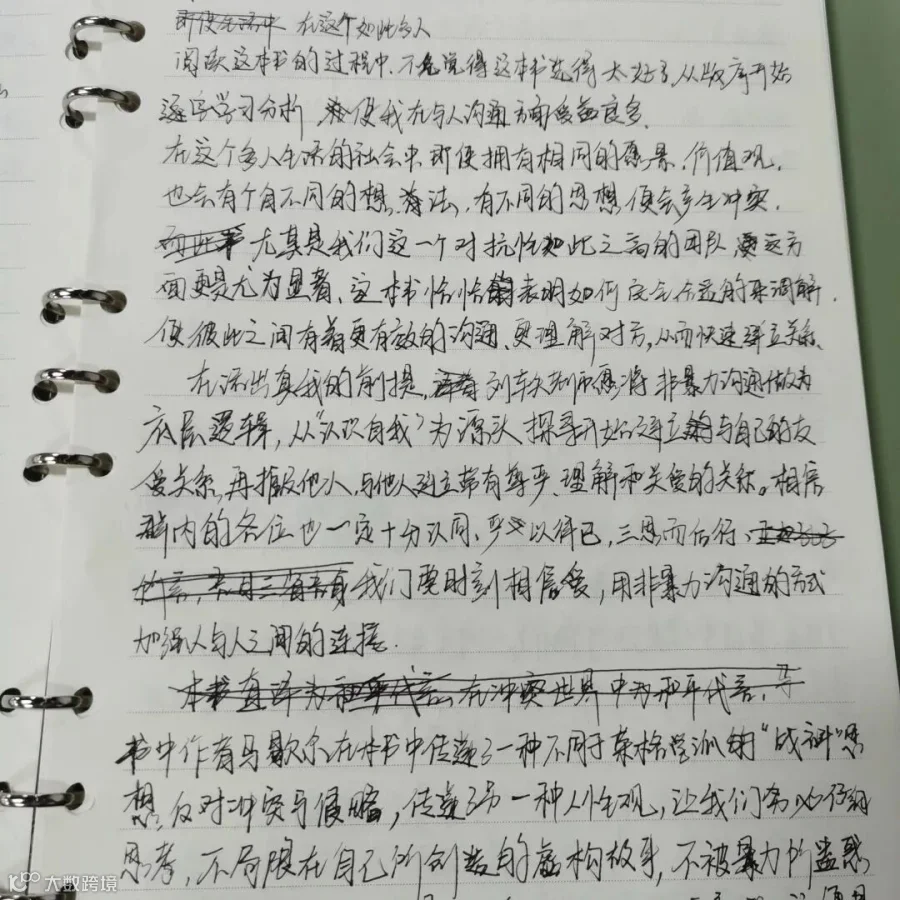 即使生活中 在这个如此多人
阅读这本书的过程中,不免觉得这本书选得太好了,从版序开始
逐字学习分析,使我在与人沟通方面受益良多.
在这个多人生活的社会中,即使拥有相同的愿景、价值观,
也会有个自不同的想法,有不同的思想便会产生冲突,
尤其是我们这一个对抗性如此之高的团队,更这方
面更是尤为显著、这本书恰恰表明如何安全合适的来调解,
使彼此之间有着更有效的沟通、更理解对方,从而快速建立关系.
在活出真我的前提,列车规而愿将非暴力沟通做为
底层逻辑,从"认识自我"为源头探寻开始建立与自己的友
爱关系,再推及他人,与他人建立带有尊严、理解和关爱的关系。相信
群内的各位也一定十分认同、严以律己,三思而后行、
我们要时刻相信爱,用非暴力沟通的方式
加强人与人之间的连接.
本书直译为和平代言,在冲突世界中为和平代言,
书中作者马歇尔在本书中传递了一种不同于荣格学派的"战神"思
想,反对冲突与侵略,传递了另一种人性观,让我们务必仔细
思考,不局限在自己所创造的虚构故事,不被暴力所蛊惑
大数跨境